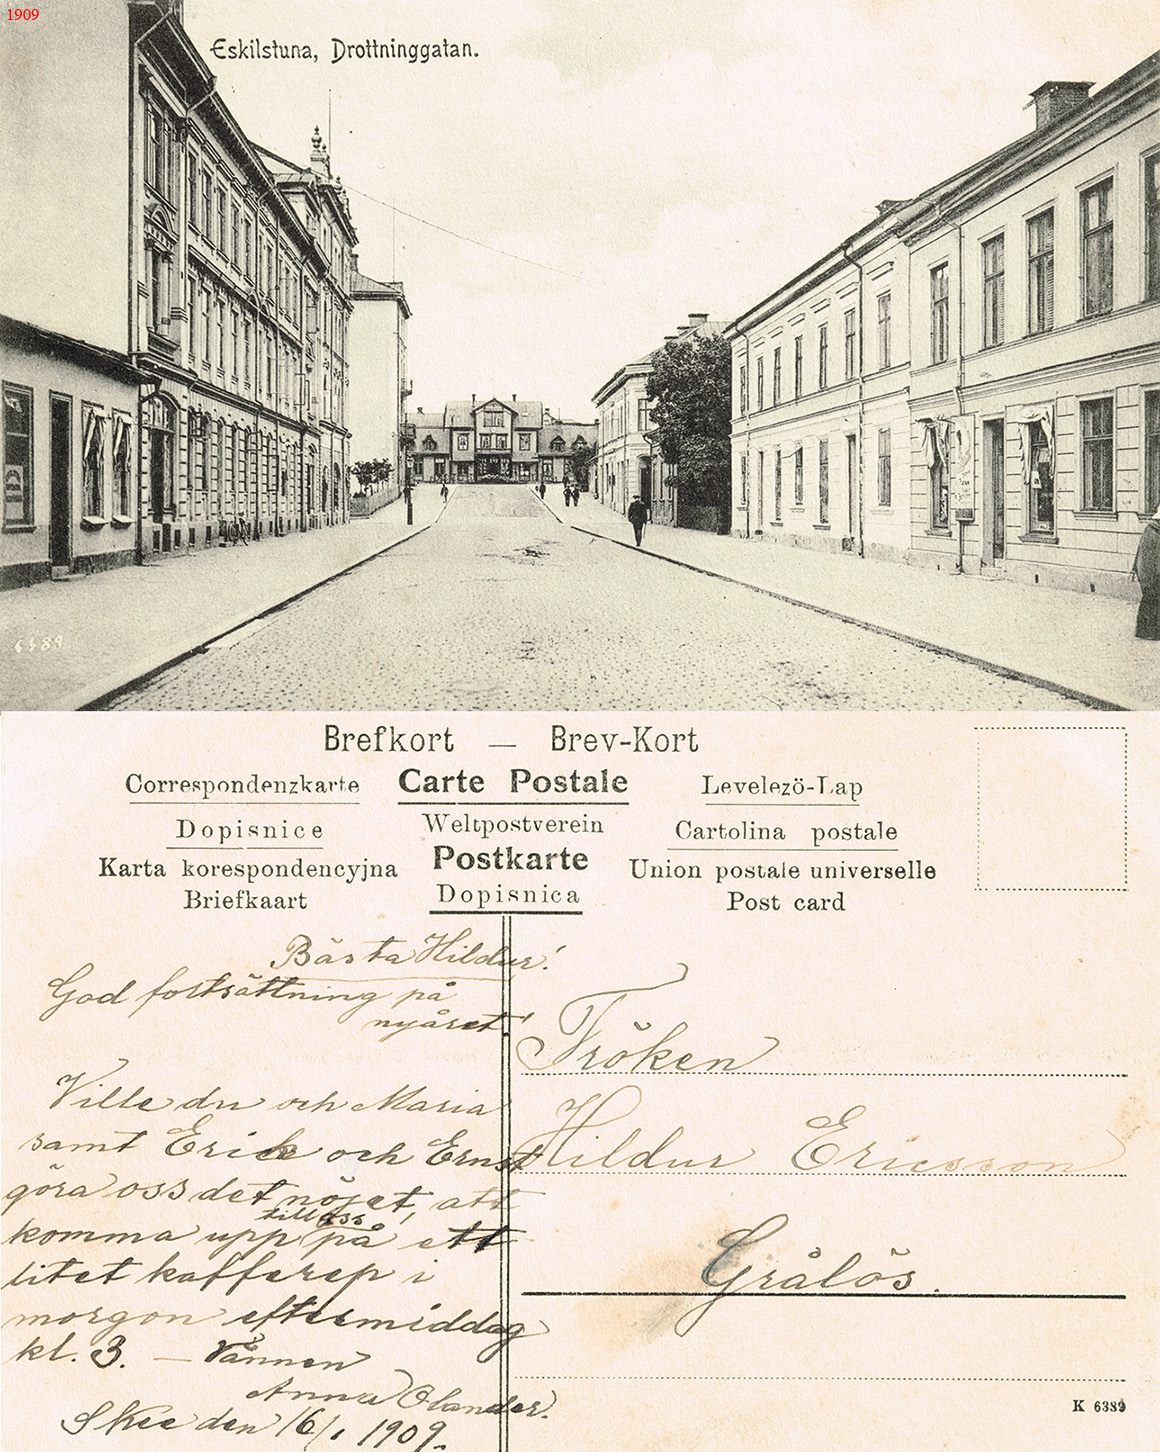 1909
Eskilstuna, Drottninggatan.
6389
Brefkort — Brev-Kort
Correspondenzkarte
Carte Postale
Levelezö-Lap
Dopisnice
Weltpostverein
Cartolina postale
Karta korespondencyjna
Postkarte
Union postale universelle
Briefkaart
Dopisnica
Post card
Bästa Hildur!
God fortsättning på
nyåret!
Ville du och Maria
samt Erick och Ernst
göra oss det nöjet, att
komma upp till oss på ett
litet kafferep i
morgon eftermiddag
kl. 3. — Vännen
Anna Olander.
Skee den 16/1 1909.
Fröken
Hildur Ericsson
Grålös.
K 6389